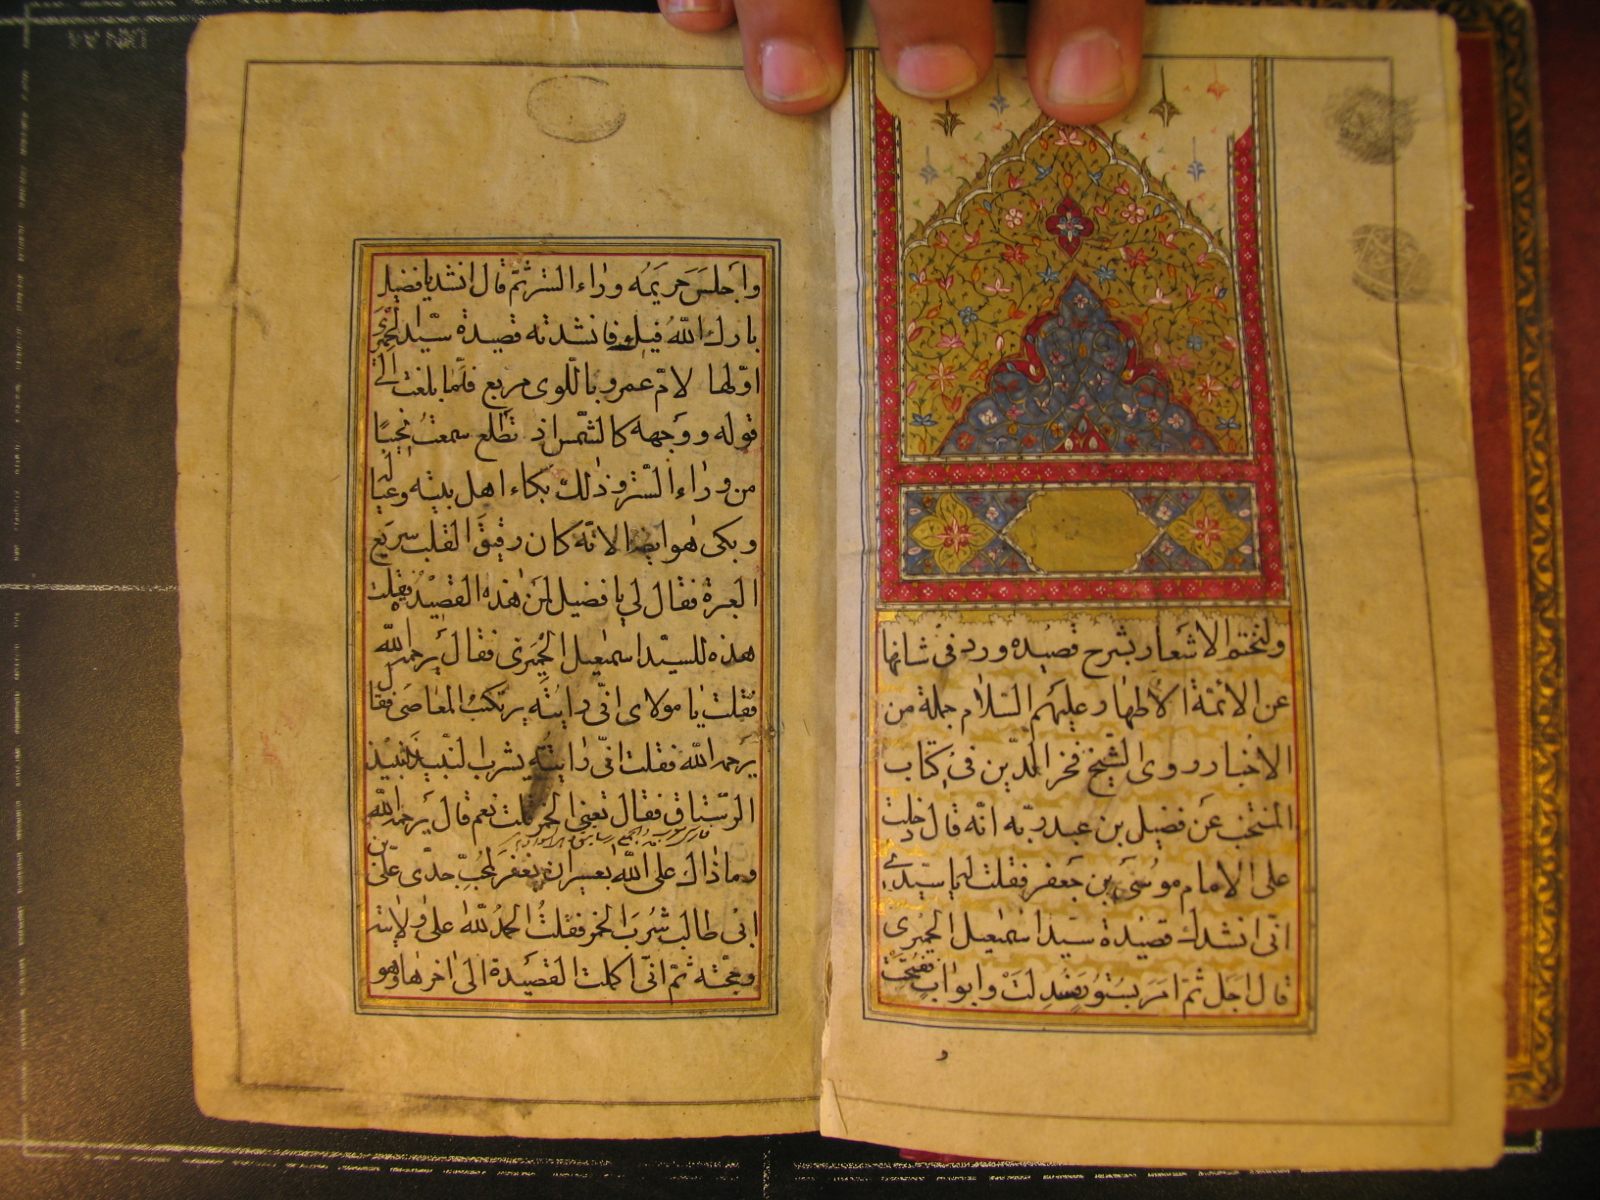 ولنختم الاشعار بشرح قصيده ورد فى شانها
عن الائمة الاطهار عليهم السلام جملة من
الاخبار روى الشيخ فخر الدين فى كتاب
المنتخب عن فضيل بن عبد ربه انه قال دخلت
على الامام موسى بن جعفر فقلت له يا سيدى
انى انشدك قصيدة سيد اسمعيل الحميرى
قال اجل ثم امر بستور فسدلت وابواب ففتحت
و
واجلس حريمه وراء الستر ثم قال انشد يا فضيل
بارك الله فيك فانشدته قصيدة سيد الحميرى
اولها لام عمرو باللوى مربع فلما بلغت الى
قوله ووجهه كالشمس اذ تطلع سمعت نحيبا
من وراء الستر وذلك بكاء اهل بيته وعياله
وبكى هو ايضا لانه كان رقيق القلب سريع
العبرة فقال لي يا فضيل لمن هذه القصيدة فقلت
هذه للسيد اسمعيل الحميرى فقال يرحمه الله
فقلت يا مولاى انى رايته يرتكب المعاصى فقال
يرحمه الله فقلت انى رايته يشرب النبيذ نبيذ
الرستاق فقال تعنى الخمر قلت نعم قال يرحمه الله
وما ذاك على الله بعسير ان يغفر لمحب جدى على بن
ابى طالب شرب الخمر فقلت الحمد لله على ولايته
ومحبته ثم انى اكملت القصيدة الى اخرها وهو